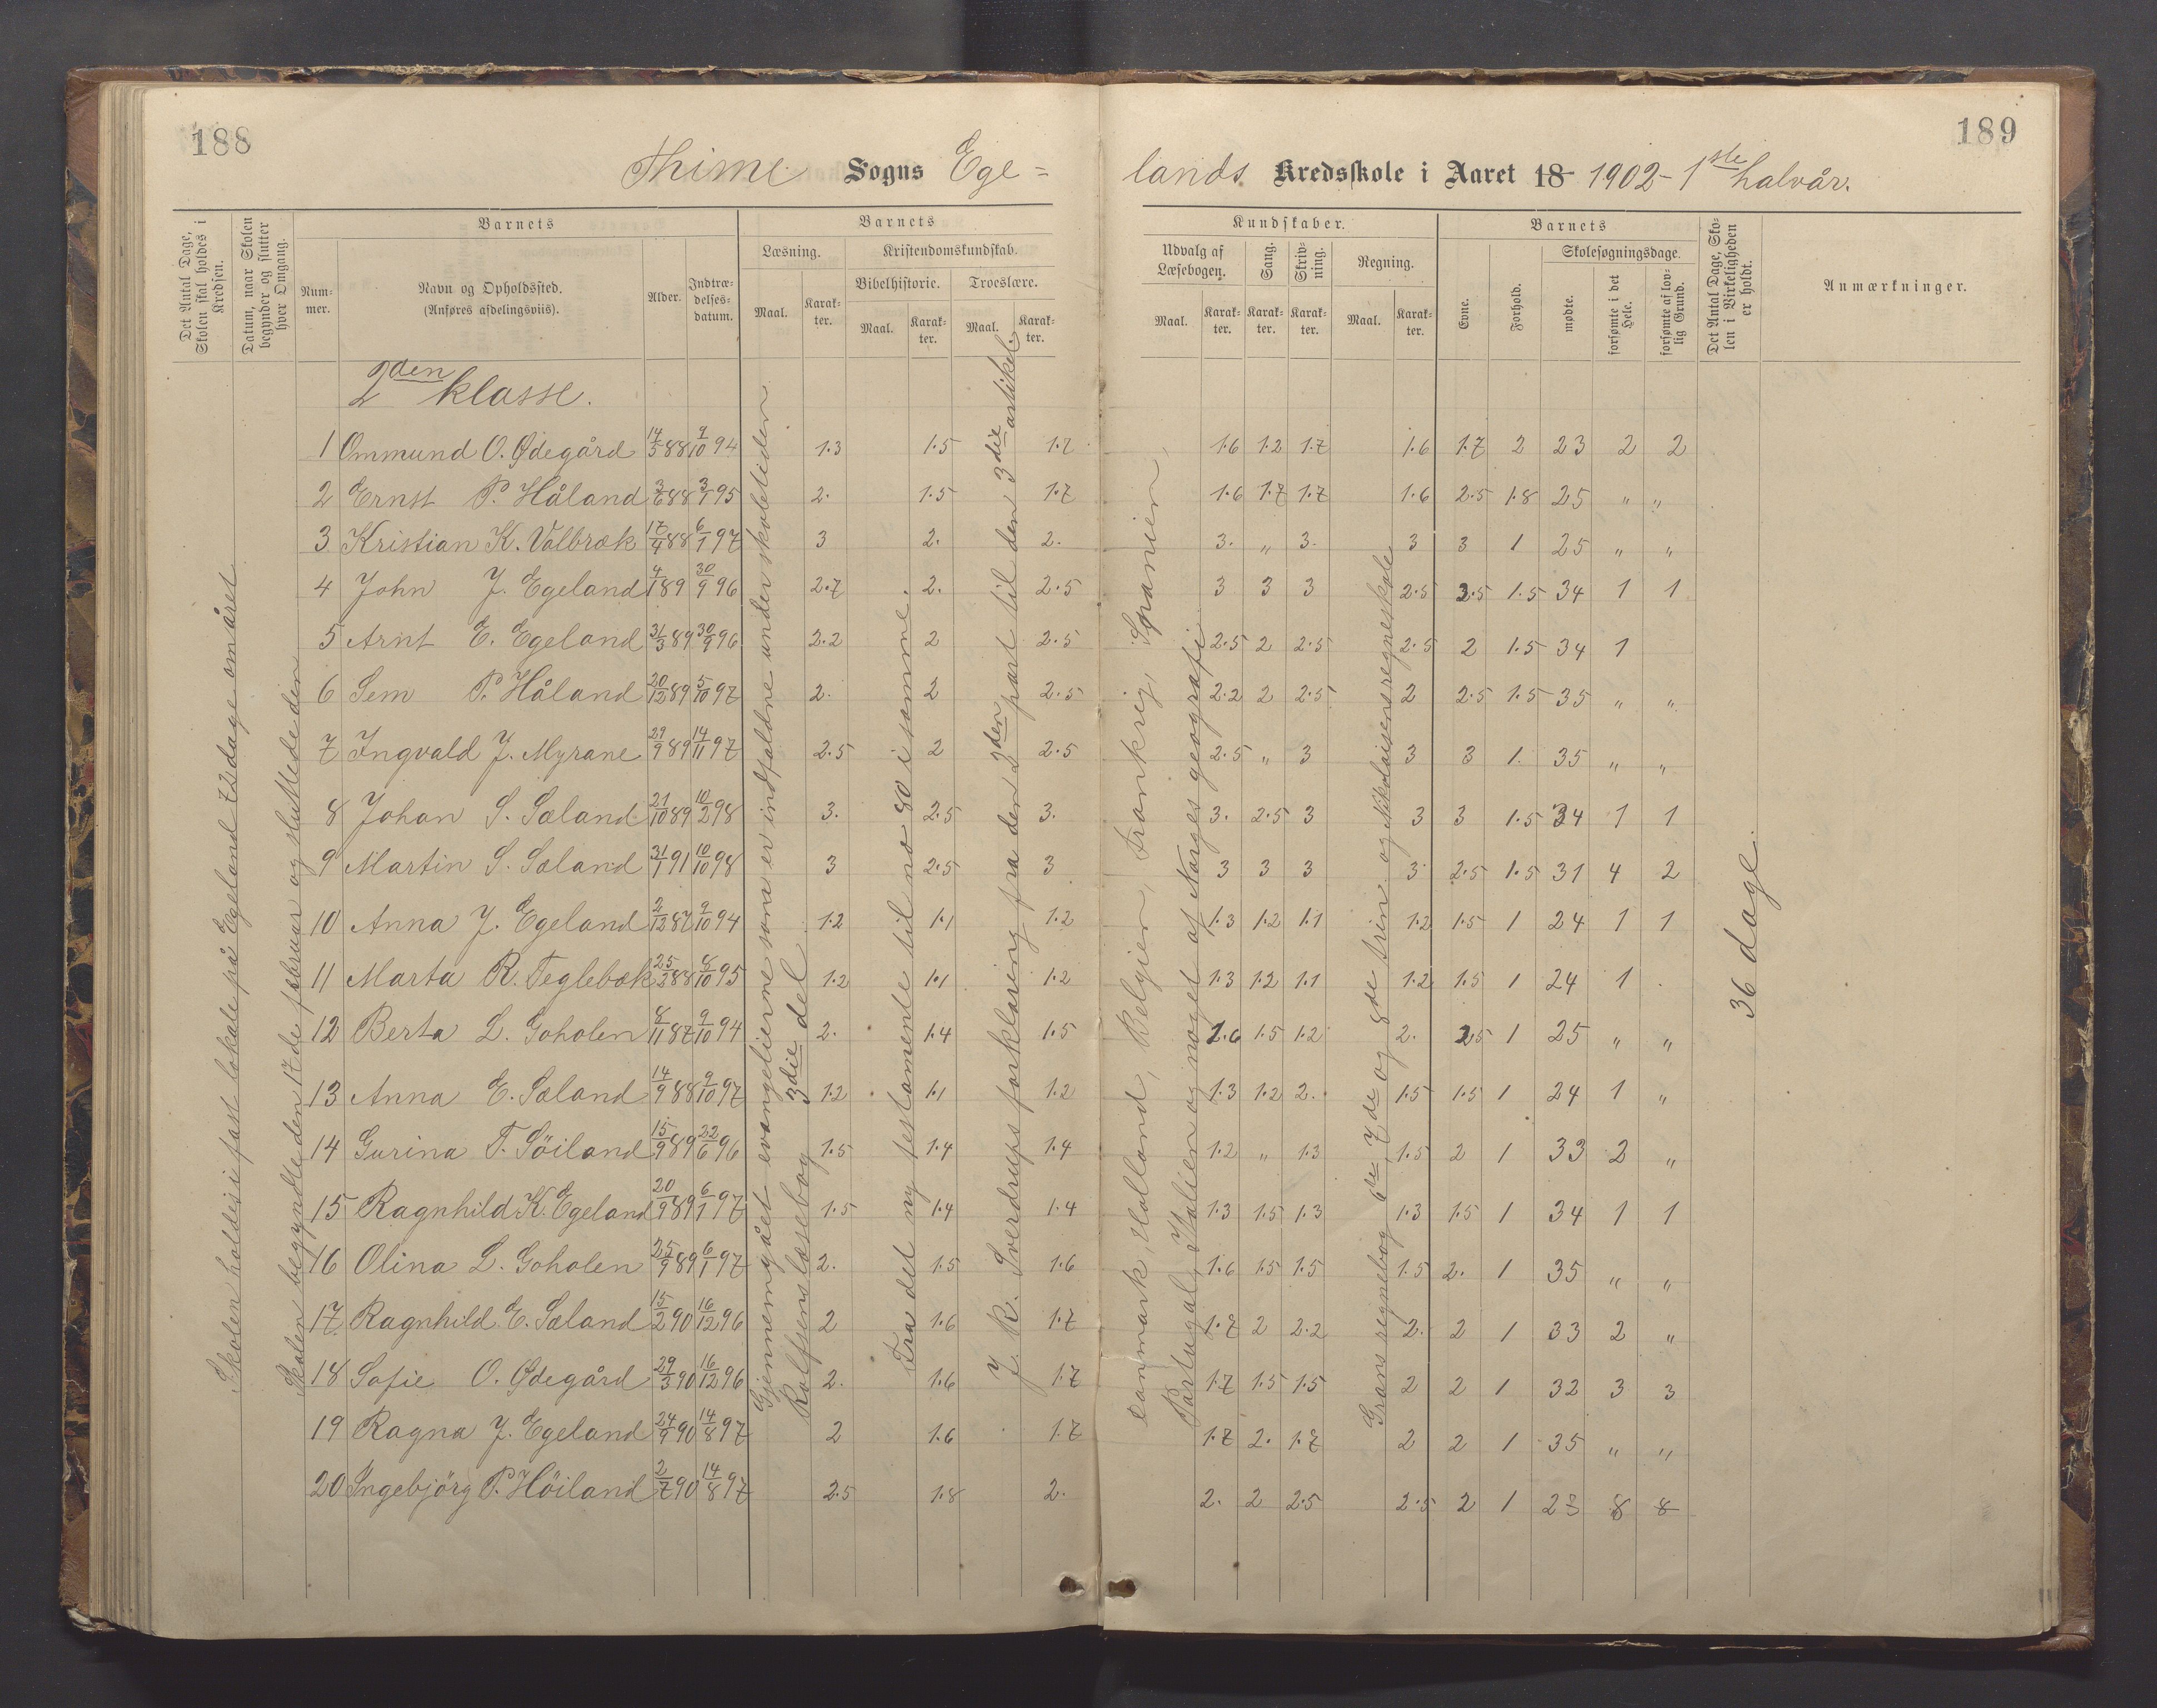 188
189
Thime Sogns Ege=
lands Kredsskole i Aaret 18 1902 - 1ste halvår.
Det Antal Dage, Skolen skal holdes i Kredsen.
Datum, naar Skolen begynder og slutter hver Omgang.
Barnets
Num-mer.
Navn og Opholdssted. (Anføres afdelingsviis).
Alder.
Indtræ-delses-datum.
Barnets
Læsning.
Maal. Karak-ter.
Kristendomskundskab.
Bibelhistorie. Troeslære.
Maal. Karak-ter. Maal. Karak-ter.
Kundskaber.
Udvalg af Læsebogen. Sang. Skriv-ning. Regning.
Maal. Karak-ter. Karak-ter. Karak-ter. Maal. Karak-ter.
Barnets
Evne. Forhold. Skolesøgningsdage.
mødte. forsømte i det Hele. forsømte af lov-lig Grund.
Det Antal Dage, Sko-len i Virkeligheden er holdt.
Anmærkninger.
2den klasse.
1 Ommund O. Ødegård 14/5 88 9/10 94 1.3 1.5 1.7 1.6 1.2 1.7 1.6 1.7 2 23 2 2
2 Ernst P. Håland 3/6 88 3/1 95 2. 1.5 1.7 1.6 1.7 1.7 1.6 2.5 1.8 25 " "
3 Kristian K. Valbræk 17/4 88 6/1 97 3 2. 2. 3. " 3. 3 3 1 25 " "
4 John J. Egeland 4/1 89 30/9 96 2.7 2. 2.5 3 3 3 2.5 2.5 1.5 34 1 1
5 Arnt E. Egeland 31/3 89 30/9 96 2.2 2 2.5 2.5 2 2.5 2.5 2 1.5 34 1
6 Sem P. Håland 20/12 89 5/10 97 2. 2 2.5 2.2 2 2.5 2 2.5 1.5 35 " "
7 Ingvald J. Myrane 29/9 89 14/11 97 2.5 2 2.5 2.5 " 3 3 3 1. 35 " "
8 Johan S. Sæland 21/10 89 10/2 98 3. 2.5 3. 3. 2.5 3 3 3 1.5 34 1 1
9 Martin S. Sæland 31/1 91 10/10 98 3 2.5 3 3 3 3 3 2.5 1.5 31 4 2
10 Anna J. Egeland 2/12 87 9/10 94 1.2 1.1 1.2 1.3 1.2 1.1 1.2 1.5 1 24 1 1
11 Marta R. Teglebæk 25/3 88 8/10 95 1.2 1.1 1.2 1.3 1.2 1.1 1.2 1.5 1 24 1
12 Berta L. Goholen 8/11 87 9/10 94 2. 1.4 1.5 1.6 1.5 1.2 2. 2.5 1 25 " "
13 Anna E. Sæland 14/9 88 9/10 97 1.2 1.1 1.2 1.3 1.2 2. 1.5 1.5 1 24 1 "
14 Gurina T. Söiland 15/9 89 22/6 96 1.5 1.4 1.4 1.2 " 1.3 1.5 2 1 33 2 "
15 Ragnhild K. Egeland 20/9 89 6/1 97 1.5 1.4 1.4 1.3 1.5 1.3 1.3 1.5 1 34 1 1
16 Olina L. Goholen 25/9 89 6/1 97 2. 1.5 1.6 1.6 1.5 1.5 1.5 2. 1 35 " "
17 Ragnhild E. Sæland 15/2 90 16/12 96 2 1.6 1.7 1.7 2 2.2 2. 2 1 33 2 "
18 Sofie O. Ødegård 29/3 90 16/12 96 2. 1.6 1.7 1.7 1.5 1.5 2 2 1 32 3 3
19 Ragna J. Egeland 24/9 90 14/8 97 2 1.6 1.7 1.7 2. 1.7 2 2 1 35 " "
20 Ingebjörg P. Höiland 2/7 90 14/8 97 2.5 1.8 2. 2. 2 2.5 2.5 2 1 28 8 8
Skolen holdes i fast lokale på Egeland 72 dage om året
Skolen begyndte den 17de februar og sluttede den
Gjennemgået evangelierne som er indfaldne under skoletiden
Rolfsens læsebog 3die del
Fra det ny testamente til no 80 i samme.
J. R. Sverdrups forklaring fra den 2den part til den 3die artikel.
Danmark, Holland, Belgien, Frankrig, Spanien,
Portugal, Italien og noget af Norges geografi
Grans regnebog 6de 7de og 8de trin og Nikolaisens regneskole
36 dage.